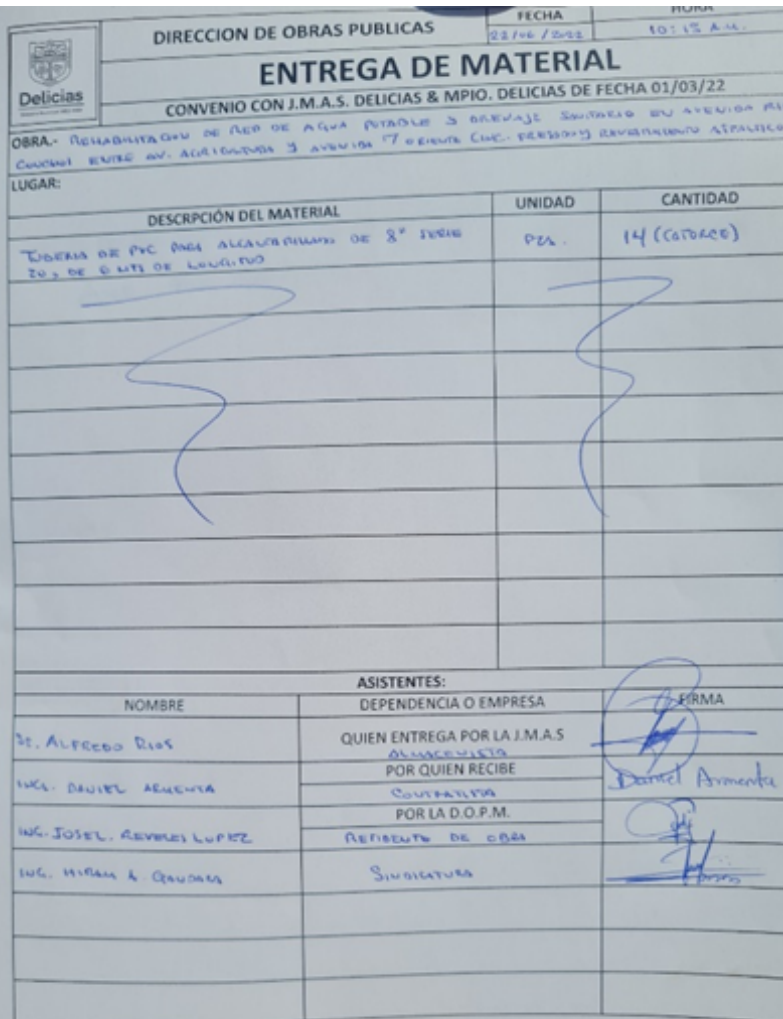 Delicias
DIRECCION DE OBRAS PUBLICAS
FECHA
HORA
22/06/2022
10:15 A.M.
ENTREGA DE MATERIAL
CONVENIO CON J.M.A.S. DELICIAS & MPIO. DELICIAS DE FECHA 01/03/22
OBRA.- REHABILITACION DE RED DE AGUA POTABLE Y DRENAJE SANITARIO EN AVENIDA RIO
CONCHOS ENTRE AV. AGRICULTURA Y AVENIDA 7 ORIENTE CINC. FRESADO Y REVESTIMIENTO ASFALTICO
LUGAR:
DESCRPCIÓN DEL MATERIAL
UNIDAD
CANTIDAD
TUBERIA DE PVC PARA ALCANTARILLADO DE 8" SERIE
20, DE 6 MTS DE LONGITUD
PZA.
14 (CATORCE)
ASISTENTES:
NOMBRE
DEPENDENCIA O EMPRESA
FIRMA
SR. ALFREDO RIOS
QUIEN ENTREGA POR LA J.M.A.S
ALMACENISTA
POR QUIEN RECIBE
ING. DANIEL ARMENTA
CONTRATISTA
Daniel Armenta
POR LA D.O.P.M.
ING. JOSE L. REVELES LOPEZ
RESIDENTE DE OBRA
ING. HIRAM A. GANDARA
SINDICATURA